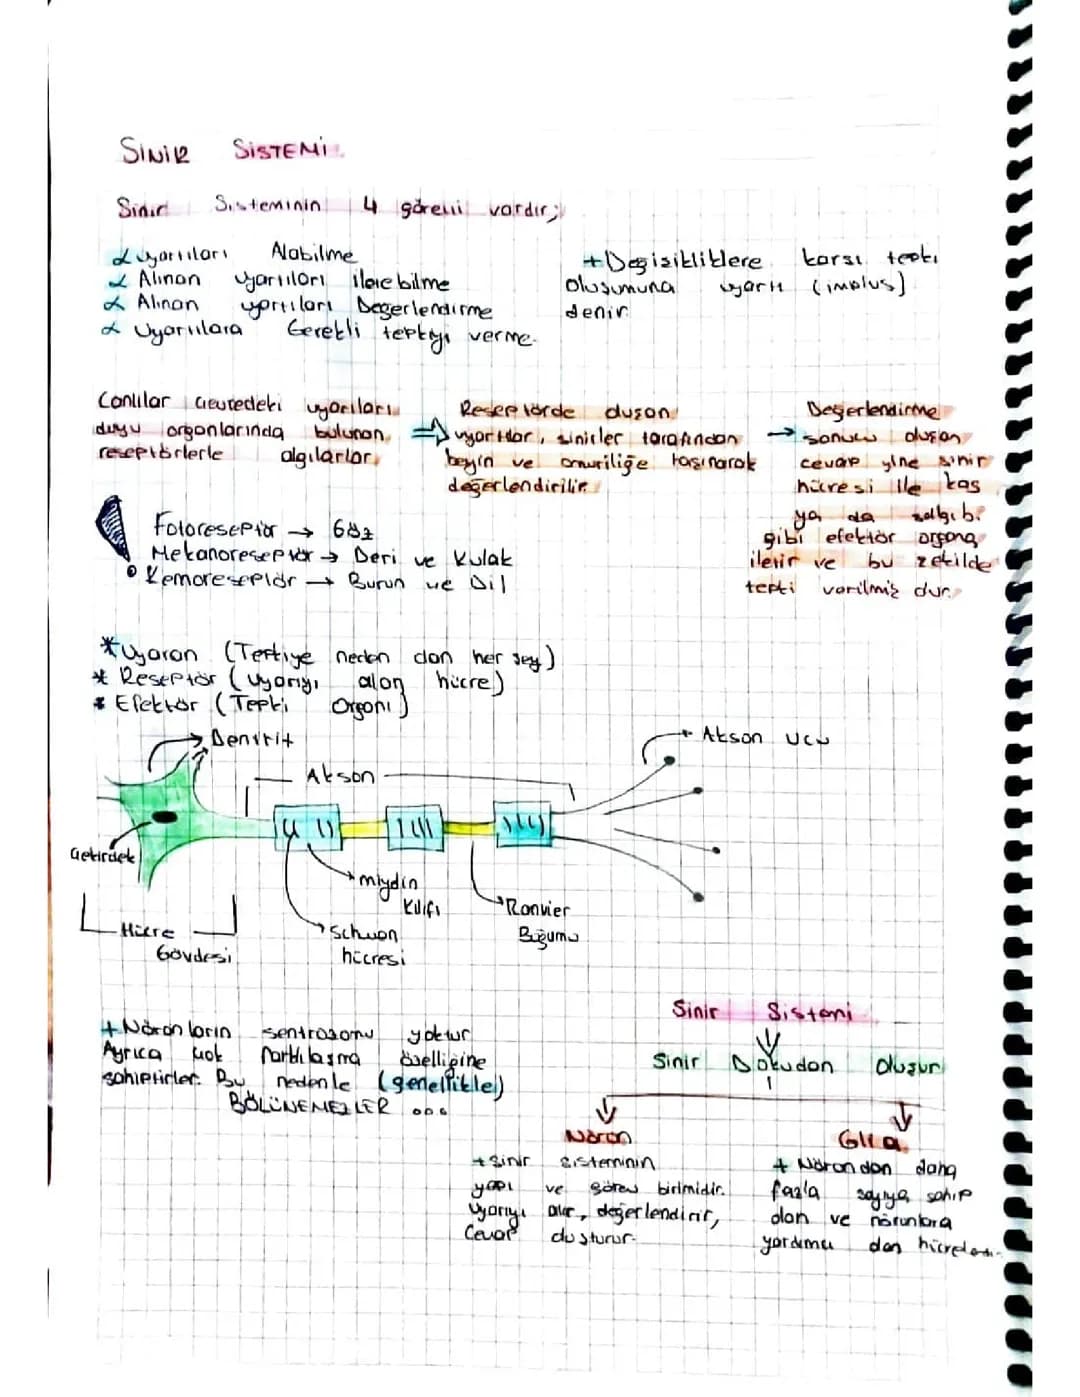 SİNİR SİSTEMİ
Sinir Sisteminin 4 görevi vardır;
Uyarıları Alabilme
Alınan uyarıları iletebilme
Alınan uyarıları Değerlendirme
Uyarılara Gerekli tepkiyi verme.
+Değişikliklere karşı tepki
oluşumuna uyartı (implus)
denir
Canlılar Çevredeki uyarıları
duyu organlarında bulunan
reseptörlerle algılarlar
Reseptörde oluşan
⇒ uyartılar, sinirler tarafından
beyin ve omuriliğe taşınarak
değerlendirilir
Değerlendirme
→ sonucu oluşan
cevap yine sinir
hücresi ile kas
ya da salgı bi
gibi efektör organa
iletir ve bu şekilde
tepki verilmiş olur.
Fotoreseptör → Göz
Mekanoreseptör → Deri ve Kulak
Kemoreseptör → Burun ve Dil
*Uyaran (Tepkiye neden olan her şey)
* Reseptör (uyarıyı alan hücre)
* Efektör (Tepki Organı)
Dentrit
Akson ucu
Akson
Çekirdek
miydin
Kılıfı
Ranvier
Boğumu
Hücre
Gövdesi
Schwan
hücresi
+Nöronların sentrozomu yoktur
Ayrıca çok farklılaşma özelliğine
sahiptirler. Bu nedenle (genellikle)
BÖLÜNEMEZLER ...
Sinir Sistemi
Sinir Dokudan Oluşur
Nöron
+ Sinir sisteminin
yapı ve görev birimidir.
Uyarıyı alır, değerlendirir,
Cevap oluşturur.
Glia
+ Nörondan daha
fazla sayıya sahip
olan ve nöronlara
yardımcı olan hücrelerdir.